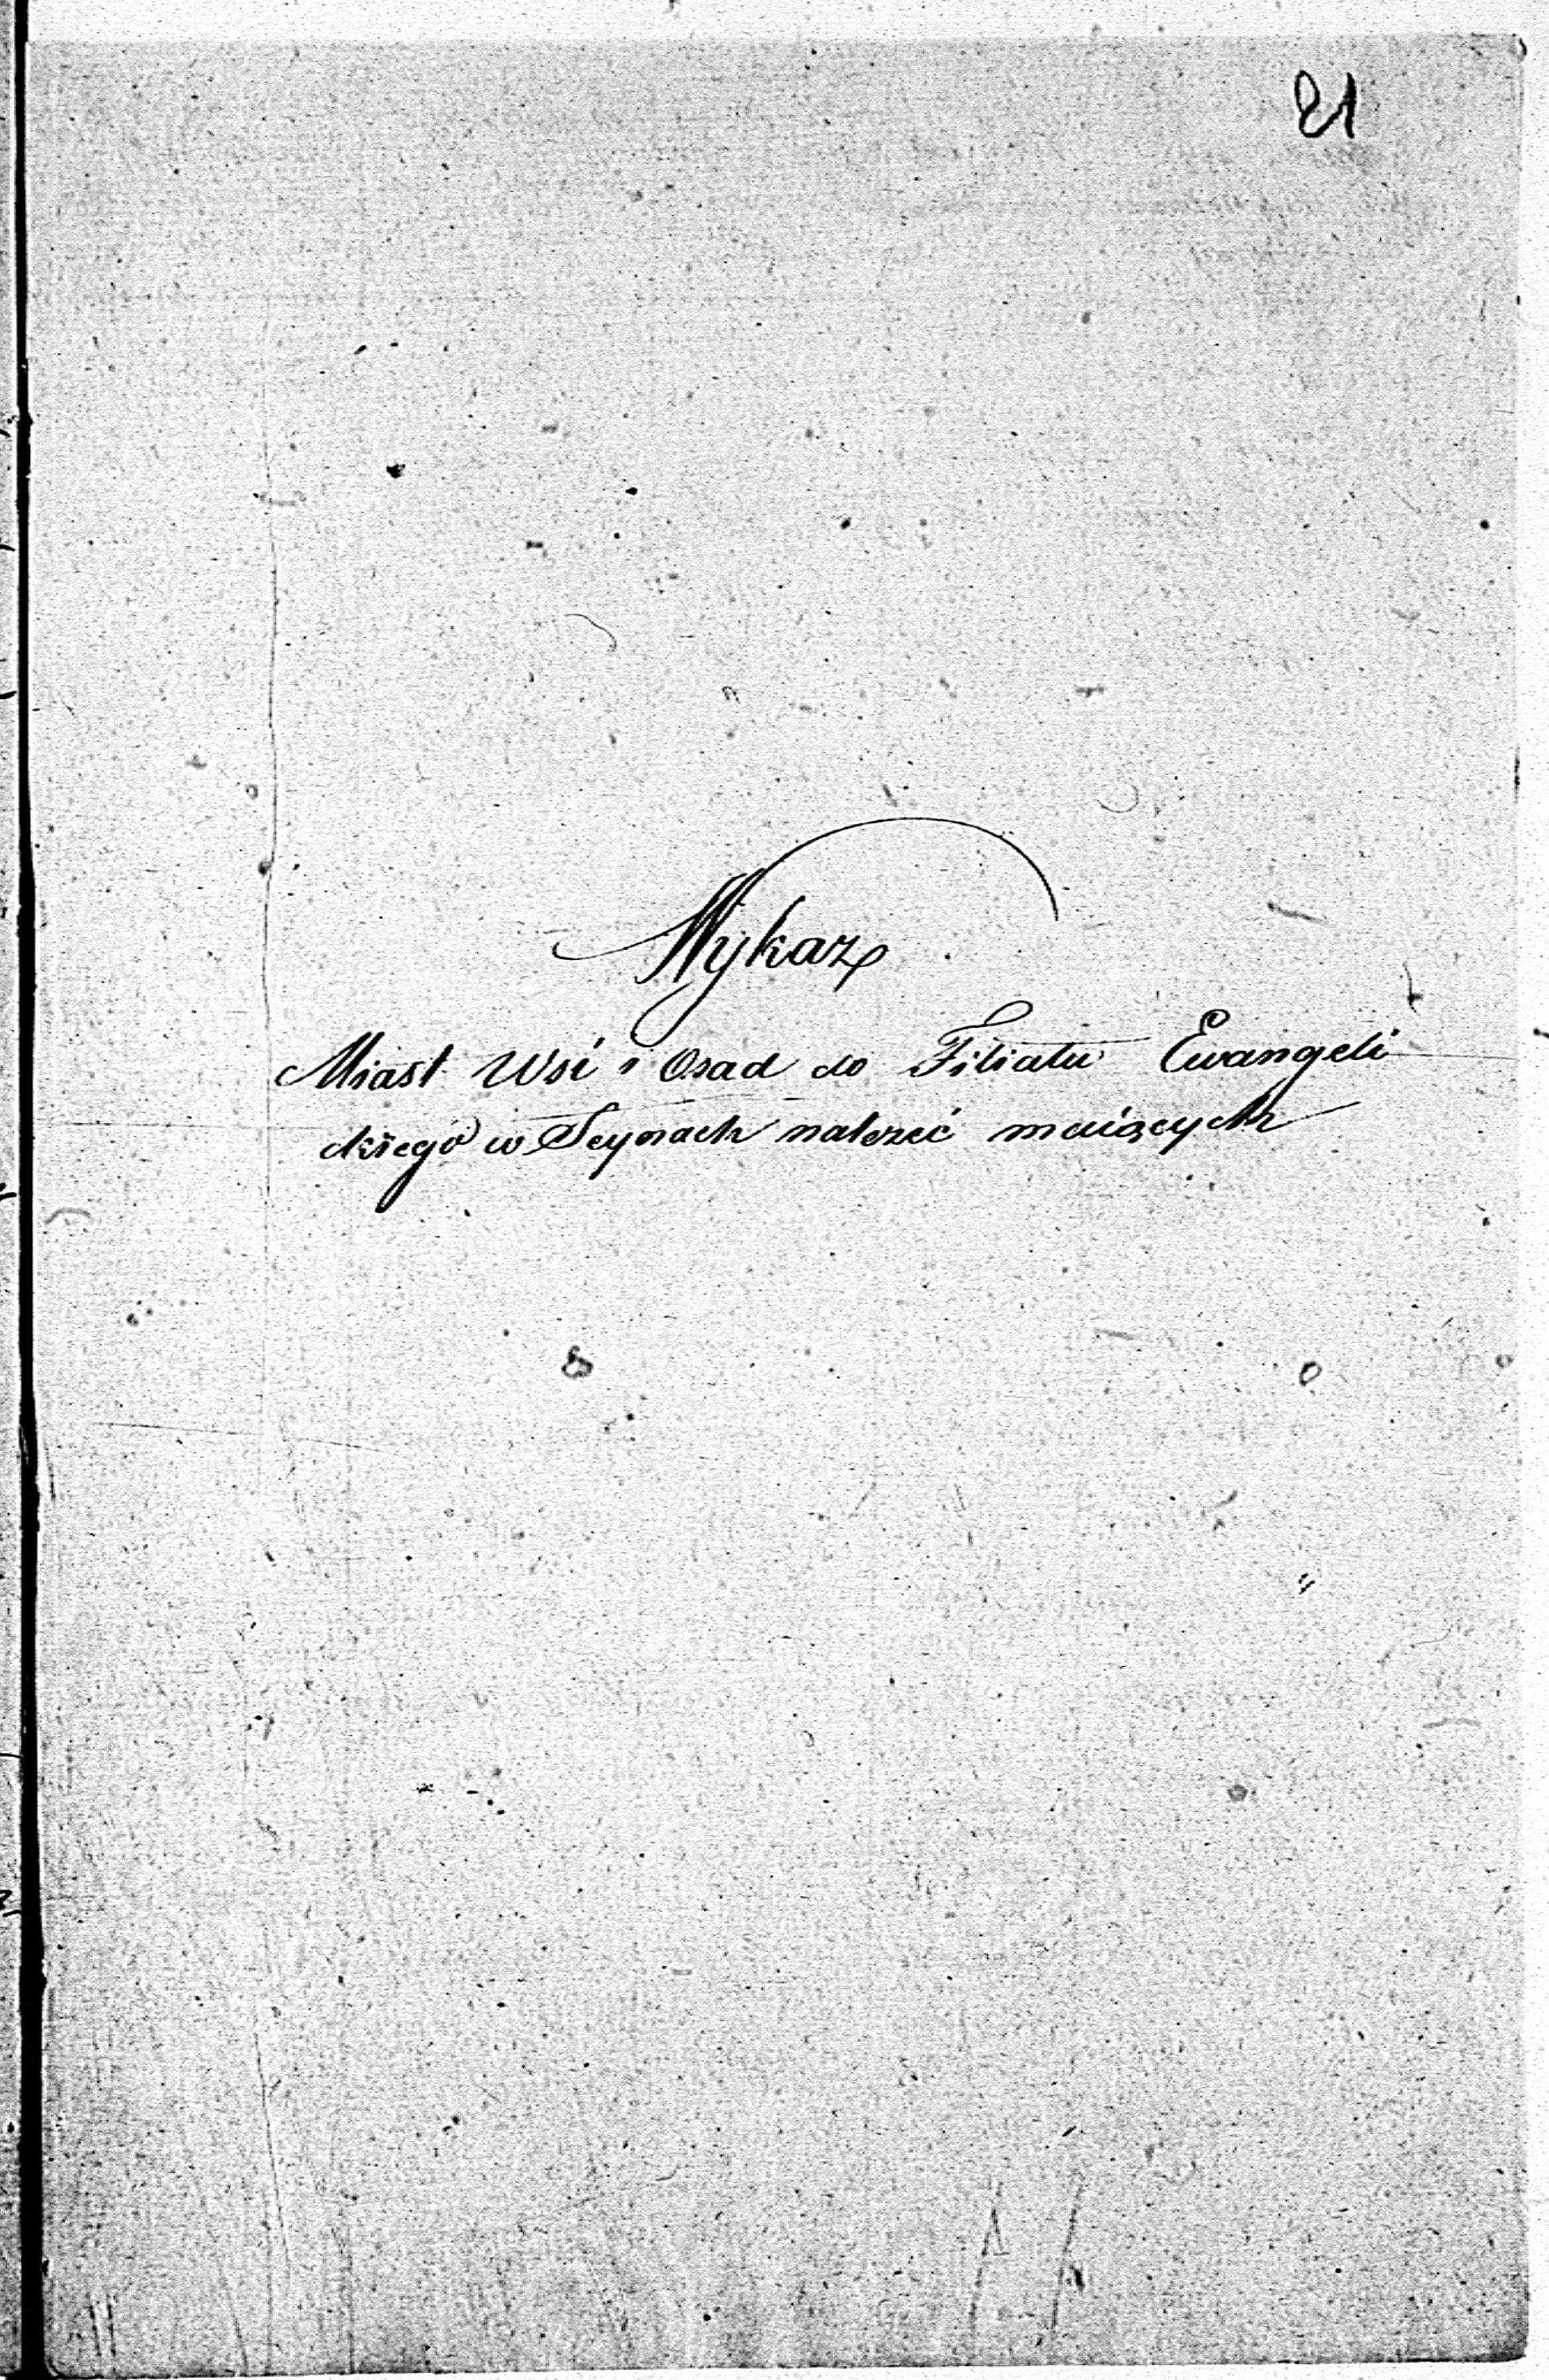 21
Wykaz
Miast Wsi i Osad do Filialu Ewangeli
ckiego w Seynach należeć maiących